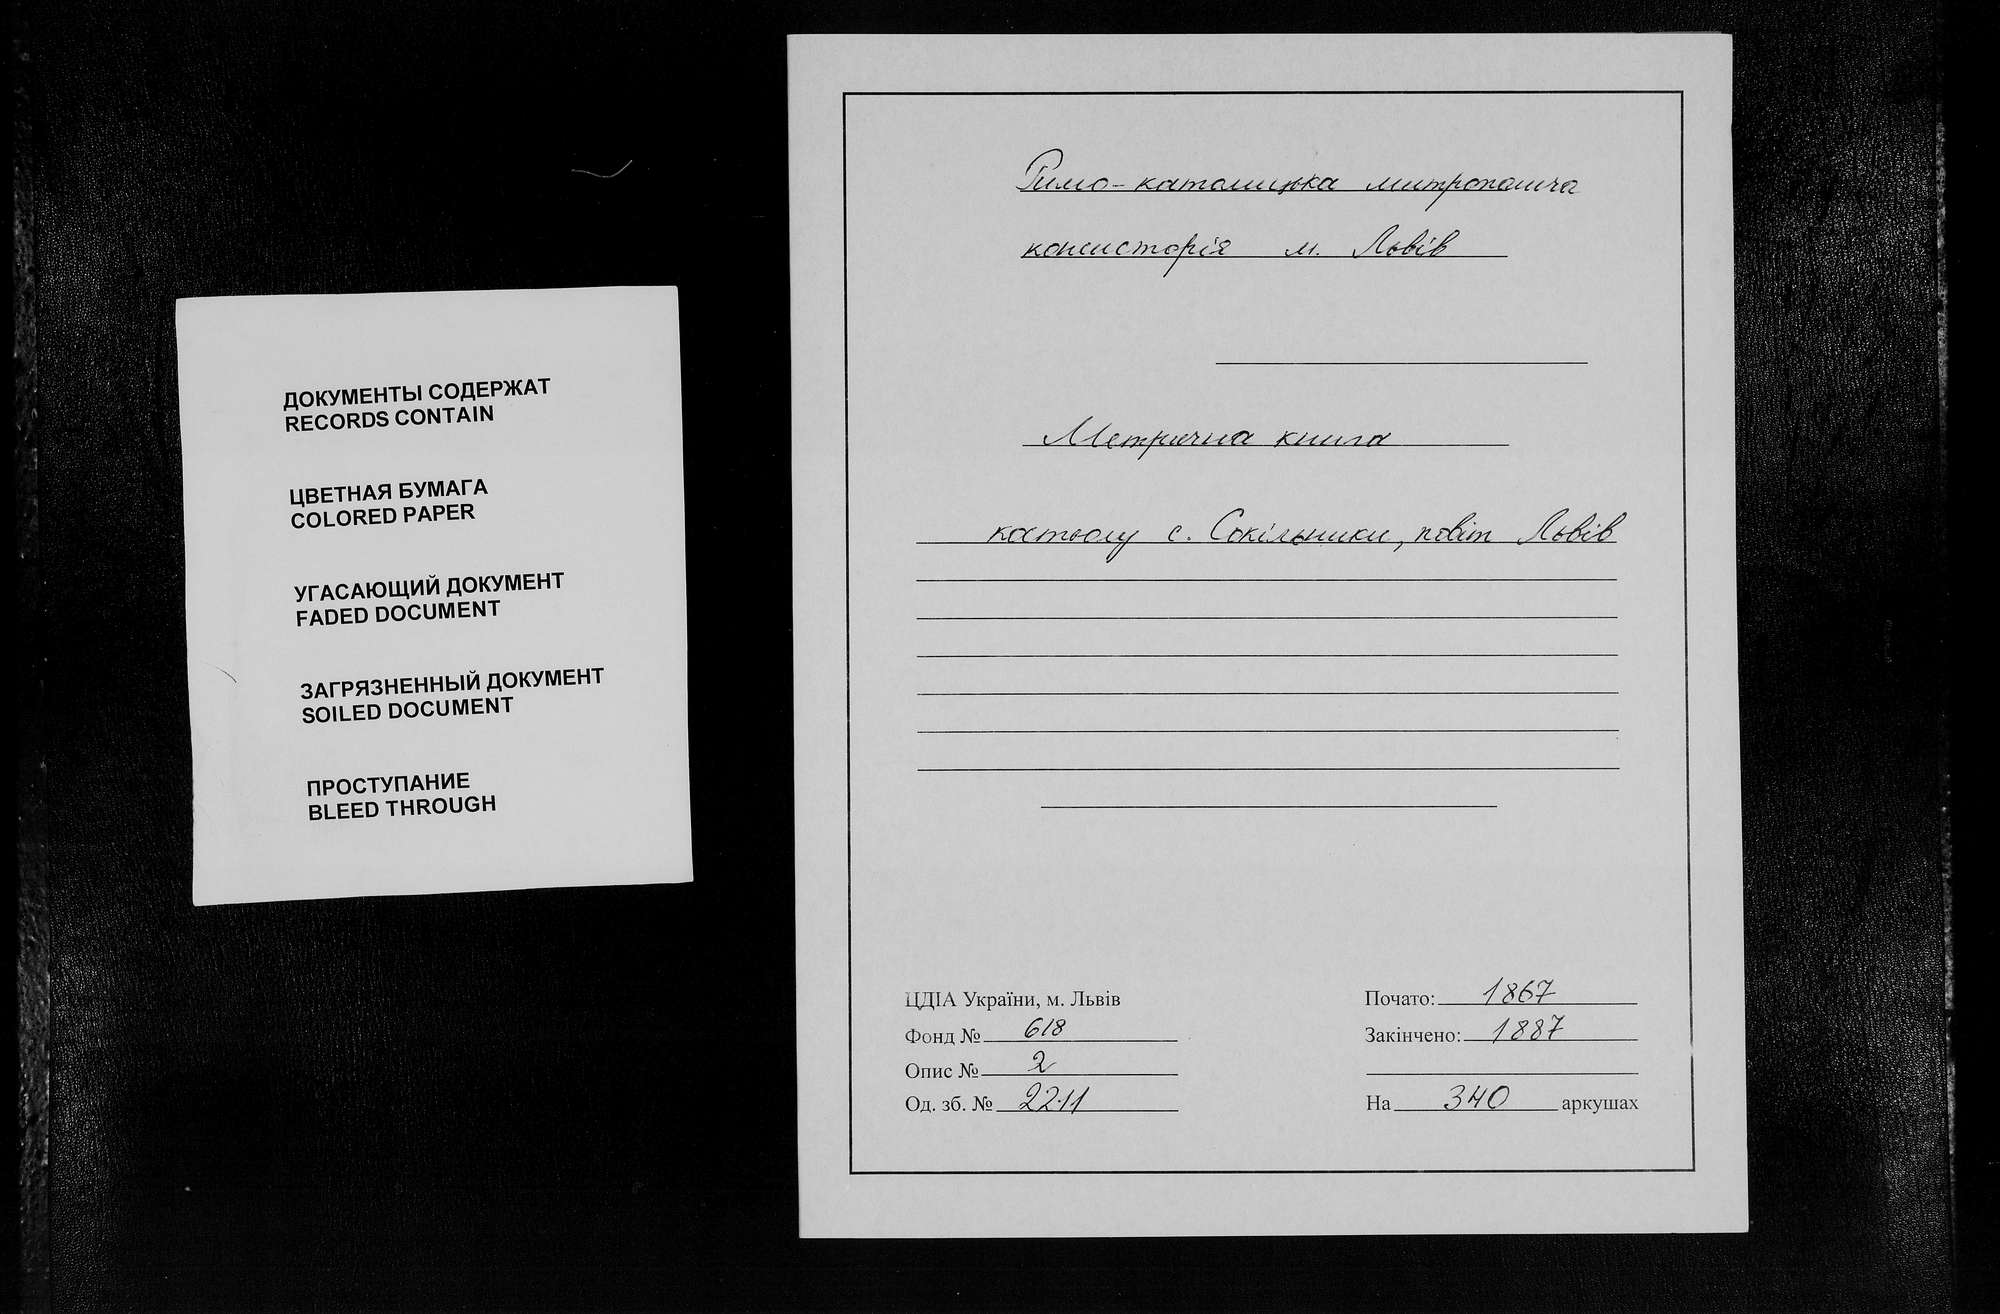 ДОКУМЕНТЫ СОДЕРЖАТ
RECORDS CONTAIN
ЦВЕТНАЯ БУМАГА
COLORED PAPER
УГАСАЮЩИЙ ДОКУМЕНТ
FADED DOCUMENT
ЗАГРЯЗНЕННЫЙ ДОКУМЕНТ
SOILED DOCUMENT
ПРОСТУПАНИЕ
BLEED THROUGH
Римо-католицька митрополича
консисторія м. Львів
Метрична книга
костьолу с. Сокільники, повіт Львів
ЦДІА України, м. Львів
Фонд № 618
Опис № 2
Од. зб. № 2211
Почато: 1867
Закінчено: 1887
На 340 аркушах